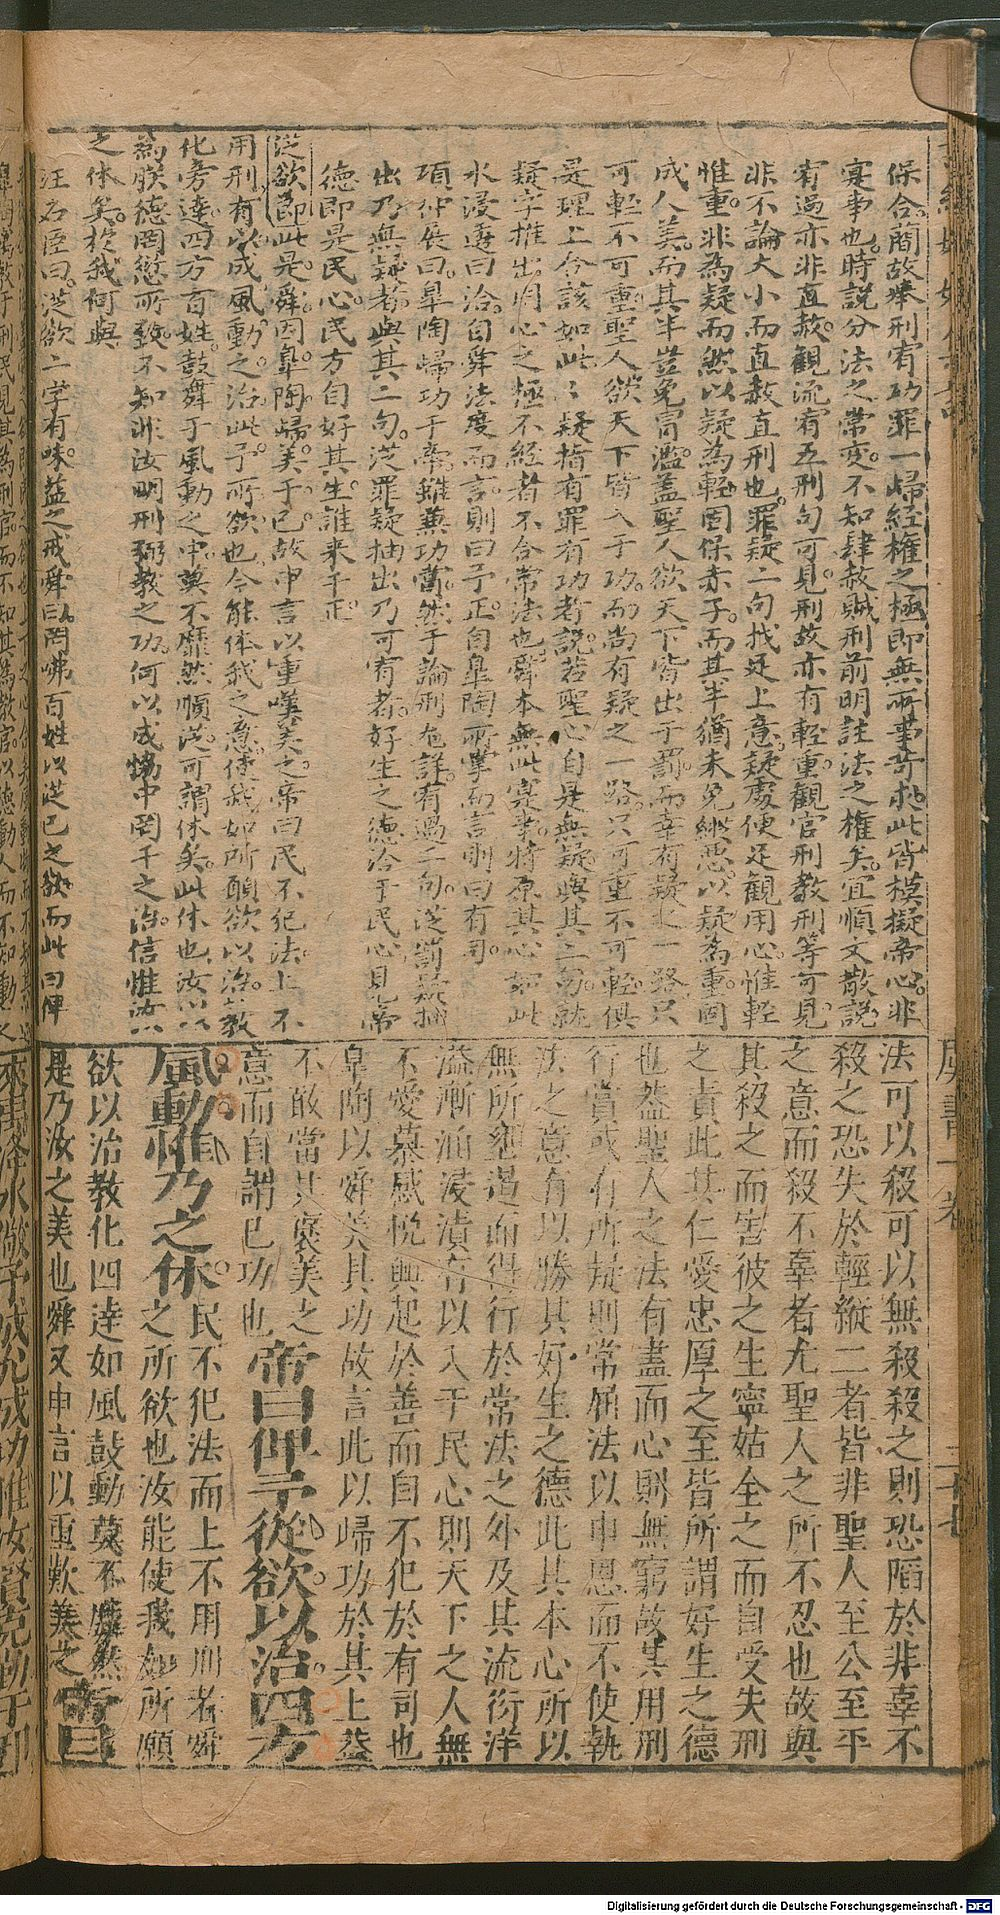 保合。商故奉刑宥功罪一歸經權之極即無所事奇求此皆模擬帝心。非
寔事也。時說分法之常变。不知肆赦賊刑前明註法之權矣。宜順文散說
宥過亦非直赦。觀流宥五刑句可見。刑故亦有輕重。觀官刑教刑等可見。
非不論大小而直赦直刑也。罪疑二句找足上意。疑處便足觀用心。惟輕
惟重。非為疑而然以疑為輕。固保赤子。而其半猶未免縱惡。以疑為重。固
成人美。而其半豈免冐濫。蓋聖人欲天下皆出于罰。而幸有疑之一路。只
可輕不可重。聖人欲天下皆入于功。而尚有疑之一路。只可重不可輕。俱
是理上合該如此。疑指有罪有功者說。若聖心自是無疑。與其二句。就
疑字推出。用心之極。不經者不合常法也。舜本無此寔事。特原其心如此
水浸遍曰洽。自舜法度而言。則曰予正。自皋陶所掌而言。則曰有司。
項仲展曰。皋陶歸功于帝。雖兼功當。然于論刑尤詳。有過二句。從罰疑抽
出乃無疑者。與其二句。從罪疑抽出乃可宥者。好生之德洽于民心。見帝
德即是民心。民方自好其生。誰来干正。
從欲節此是舜。因皋陶歸美于己。故申言以重嘆美之。帝曰民不犯法上不
用刑。有以成風動之治。此予所欲也。今能体我之意。使我如所願欲以治。教
化旁達。四方百姓。鼓舞于風動之中。莫不靡然順從。可謂休矣。此休也。汝以
為朕德罔愆所致。不知非汝明刑弼教之功。何以成協中罔干之治。信惟汝
之休矣。於我何與
汪名臣曰。從欲二字有味。益之戒舜曰。罔咈百姓以從己之欲。而此曰俾
虞書一卷
二十七
法可以殺可以無殺殺之則恐陷於非辜不
殺之恐失於輕縱二者皆非聖人至公至平
之意而殺不辜者尤聖人之所不忍也故與
其殺之而害彼之生寧姑全之而自受失刑
之責此其仁愛忠厚之至皆所謂好生之德
也蓋聖人之法有盡而心則無窮故其用刑
行賞或有所疑則常屈法以申恩而不使執
法之意有以勝其好生之德此其本心所以
無所壅遏而得行於常法之外及其流衍洋
溢漸涵浸漬有以入于民心則天下之人無
不愛慕感悅興起於善而自不犯於有司也
皋陶以舜美其功故言此以歸功於其上蓋
不敢當其褒美之
意而自謂己功也帝曰俾予從欲以治四方
風動惟乃之休民不犯法而上不用刑者舜
之所欲也汝能使我如所願
欲以治教化四達如風鼓動莫不靡然
是乃汝之美也舜又申言以重歎美之帝曰
來禹洚水儆予成允成功惟汝賢克勤于邦
Digitalisierung gefördert durch die Deutsche Forschungsgemeinschaft - DFG